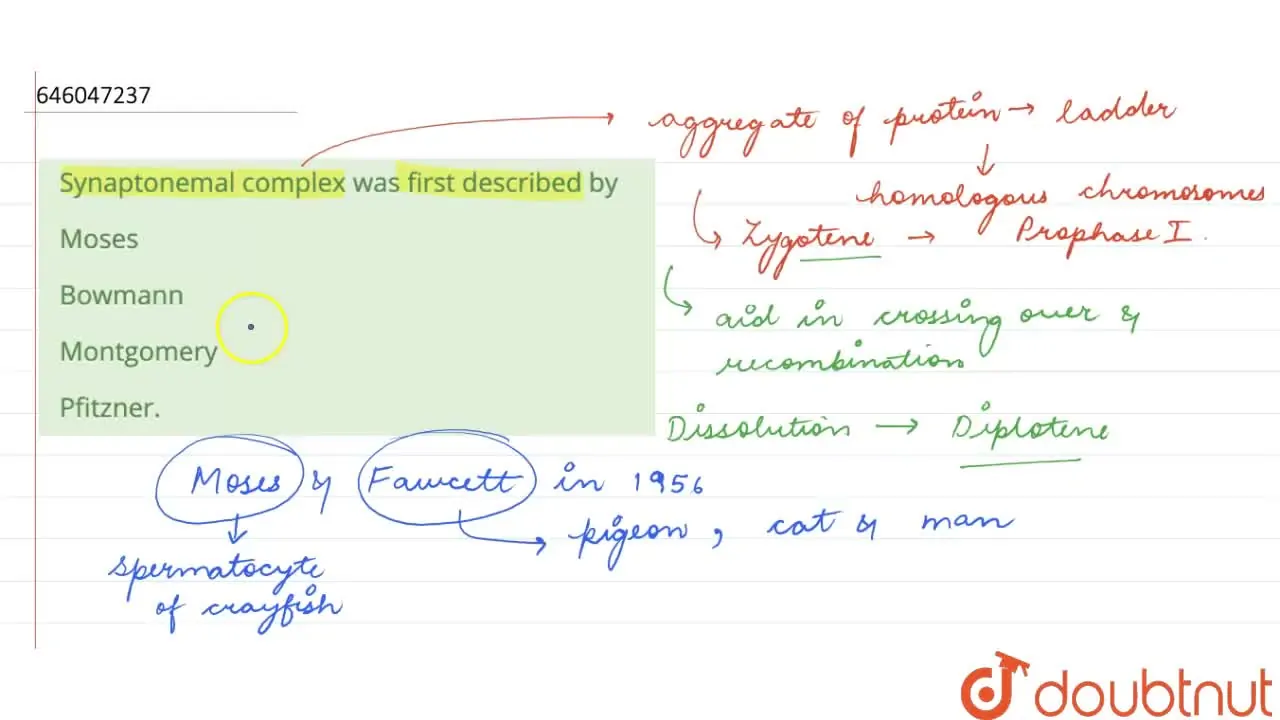 646047237
aggregate of protein → ladder
Synaptonemal complex was first described by
homologous chromosomes
Moses
Zygotene → Prophase I.
Bowmann
aid in crossing over &
Montgomery
recombination
Pfitzner.
Dissolution → Diplotene
Moses & Fawcett in 1956
pigeon, cat & man
spermatocyte
of crayfish
doubtnut